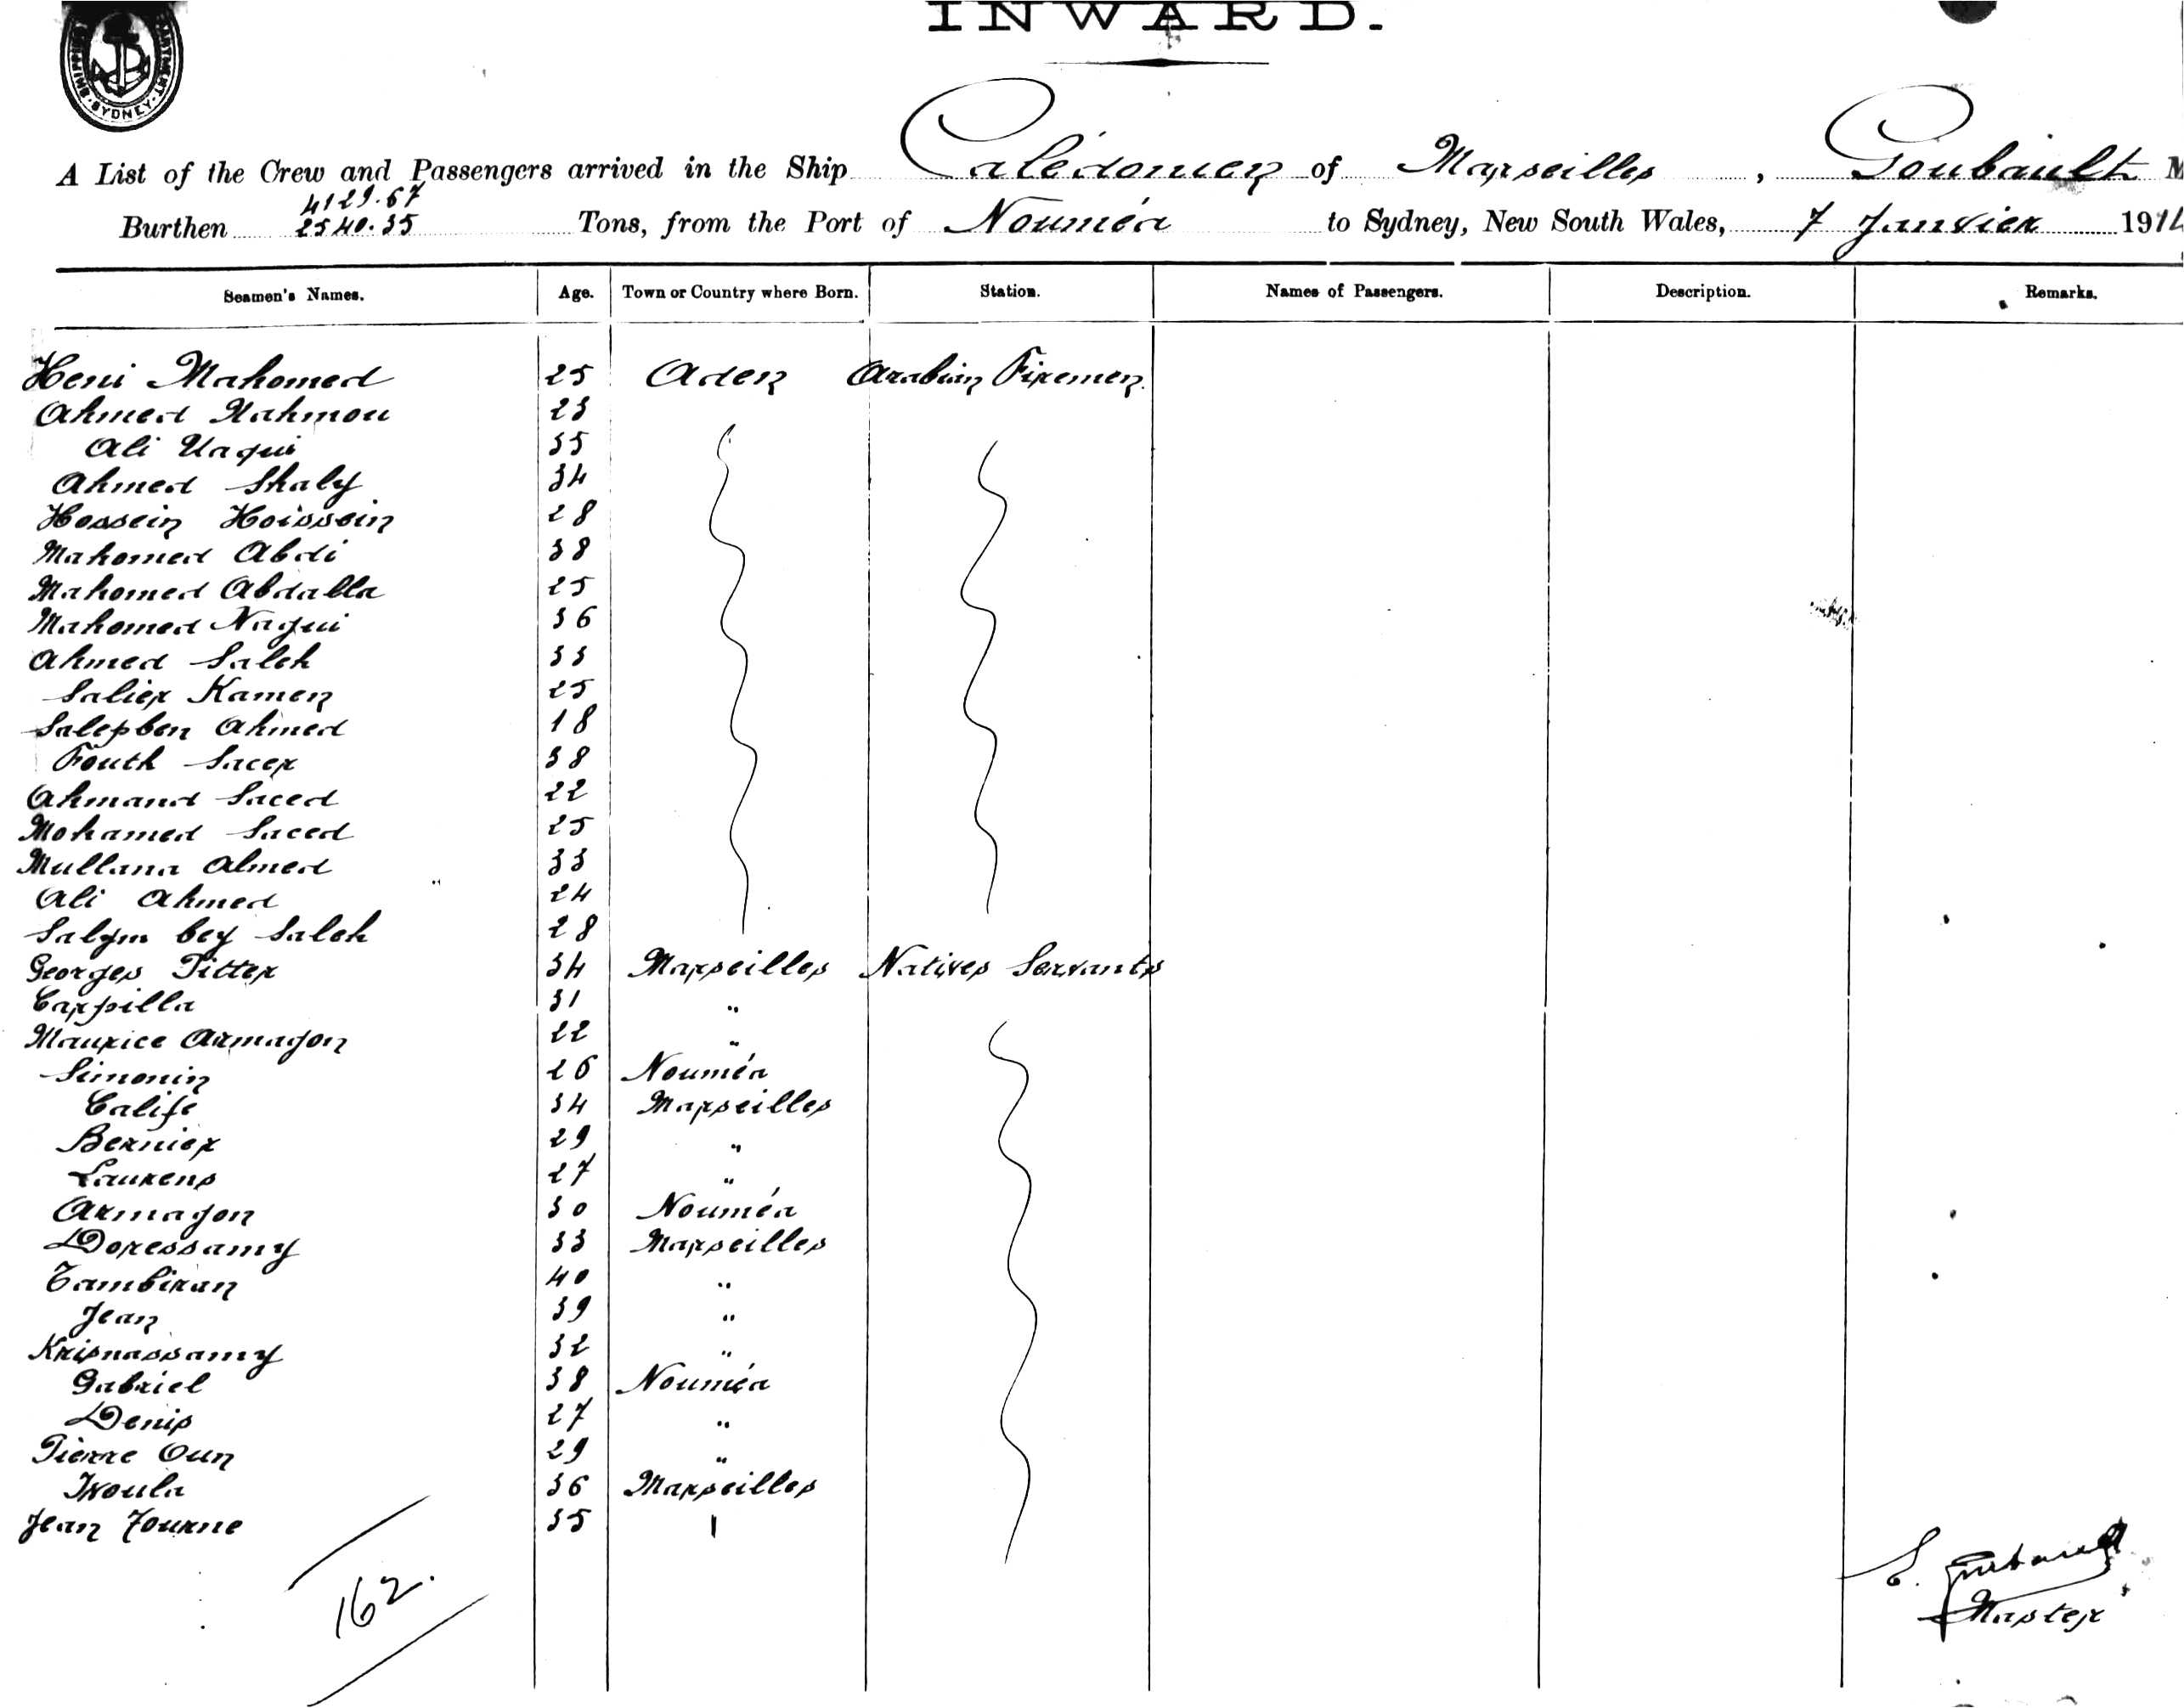 INWARD.
SHIPPING SYDNEY
A List of the Crew and Passengers arrived in the Ship Calédonien of Marseilles, Goubault M
4129.67
Burthen 2540.35 Tons, from the Port of Nouméa to Sydney, New South Wales, 7 Janvier 1914
Seamen's Names. Age. Town or Country where Born. Station. Names of Passengers. Description. Remarks.
Heni Mahomed 25 Aden Arabian Firemen.
Ahmed Nahmou 23
Ali Naqui 35
Ahmed Shaly 34
Hossein Hoissein 28
Mahomed Abdi 38
Mahomed Abdalla 25
Mahomed Naqui 36
Ahmed Saleh 33
Salier Kamen 25
Salepben Ahmed 18
Fouth Sacer 38
Ahmand Saced 22
Mohamed Saced 25
Mullana Almed 33
Ali Ahmed 24
Salym bey Saleh 28
Georges Pitter 34 Marseilles Natives Servants
Carpilla 31 "
Maurice Armagon 22 "
Simonin 26 Nouméa
Calife 34 Marseilles
Bernier 29 "
Laurens 27 "
Armagon 30 Nouméa
Doressamy 33 Marseilles
Tambiran 40 "
Jean 39 "
Krisnassamy 32 "
Gabriel 38 Nouméa
Denis 27 "
Pierre Oun 29 "
Ivoula 36 Marseilles
Jean Fourne 35
162.
E. Goubault
Master